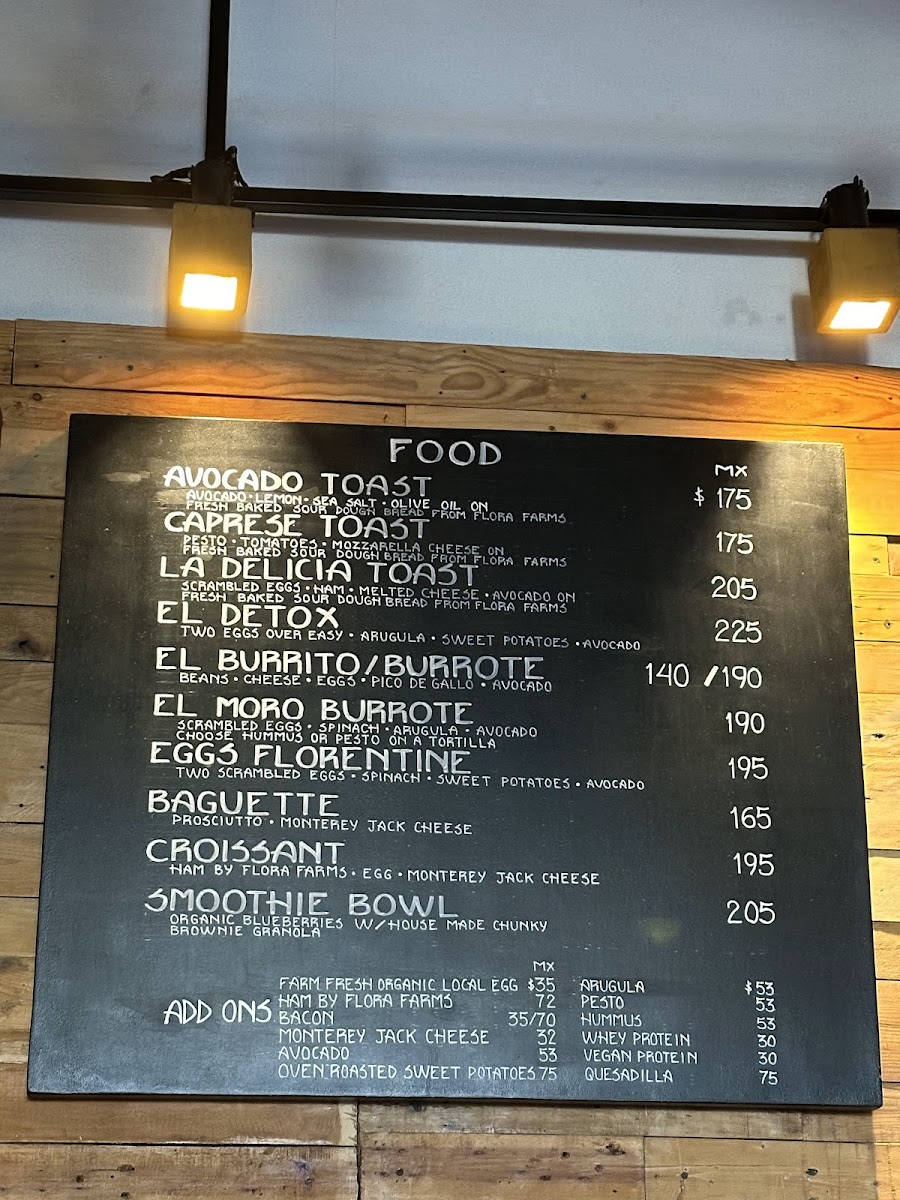 FOOD
MX
AVOCADO TOAST $ 175
AVOCADO • LEMON • SEA SALT • OLIVE OIL ON
FRESH BAKED SOUR DOUGH BREAD FROM FLORA FARMS
CAPRESE TOAST 175
PESTO • TOMATOES • MOZZARELLA CHEESE ON
FRESH BAKED SOUR DOUGH BREAD FROM FLORA FARMS
LA DELICIA TOAST 205
SCRAMBLED EGGS • HAM • MELTED CHEESE • AVOCADO ON
FRESH BAKED SOUR DOUGH BREAD FROM FLORA FARMS
EL DETOX 225
TWO EGGS OVER EASY • ARUGULA • SWEET POTATOES • AVOCADO
EL BURRITO/BURROTE 140 / 190
BEANS • CHEESE • EGGS • PICO DE GALLO • AVOCADO
EL MORO BURROTE 190
SCRAMBLED EGGS • SPINACH • ARUGULA • AVOCADO
CHOOSE HUMMUS OR PESTO ON A TORTILLA
EGGS FLORENTINE 195
TWO SCRAMBLED EGGS • SPINACH • SWEET POTATOES • AVOCADO
BAGUETTE 165
PROSCIUTTO • MONTEREY JACK CHEESE
CROISSANT 195
HAM BY FLORA FARMS • EGG • MONTEREY JACK CHEESE
SMOOTHIE BOWL 205
ORGANIC BLUEBERRIES W/HOUSE MADE CHUNKY
BROWNIE GRANOLA
ADD ONS
MX
FARM FRESH ORGANIC LOCAL EGG $35
HAM BY FLORA FARMS 72
BACON 35/70
MONTEREY JACK CHEESE 32
AVOCADO 53
OVEN ROASTED SWEET POTATOES 75
ARUGULA $53
PESTO 53
HUMMUS 53
WHEY PROTEIN 30
VEGAN PROTEIN 30
QUESADILLA 75